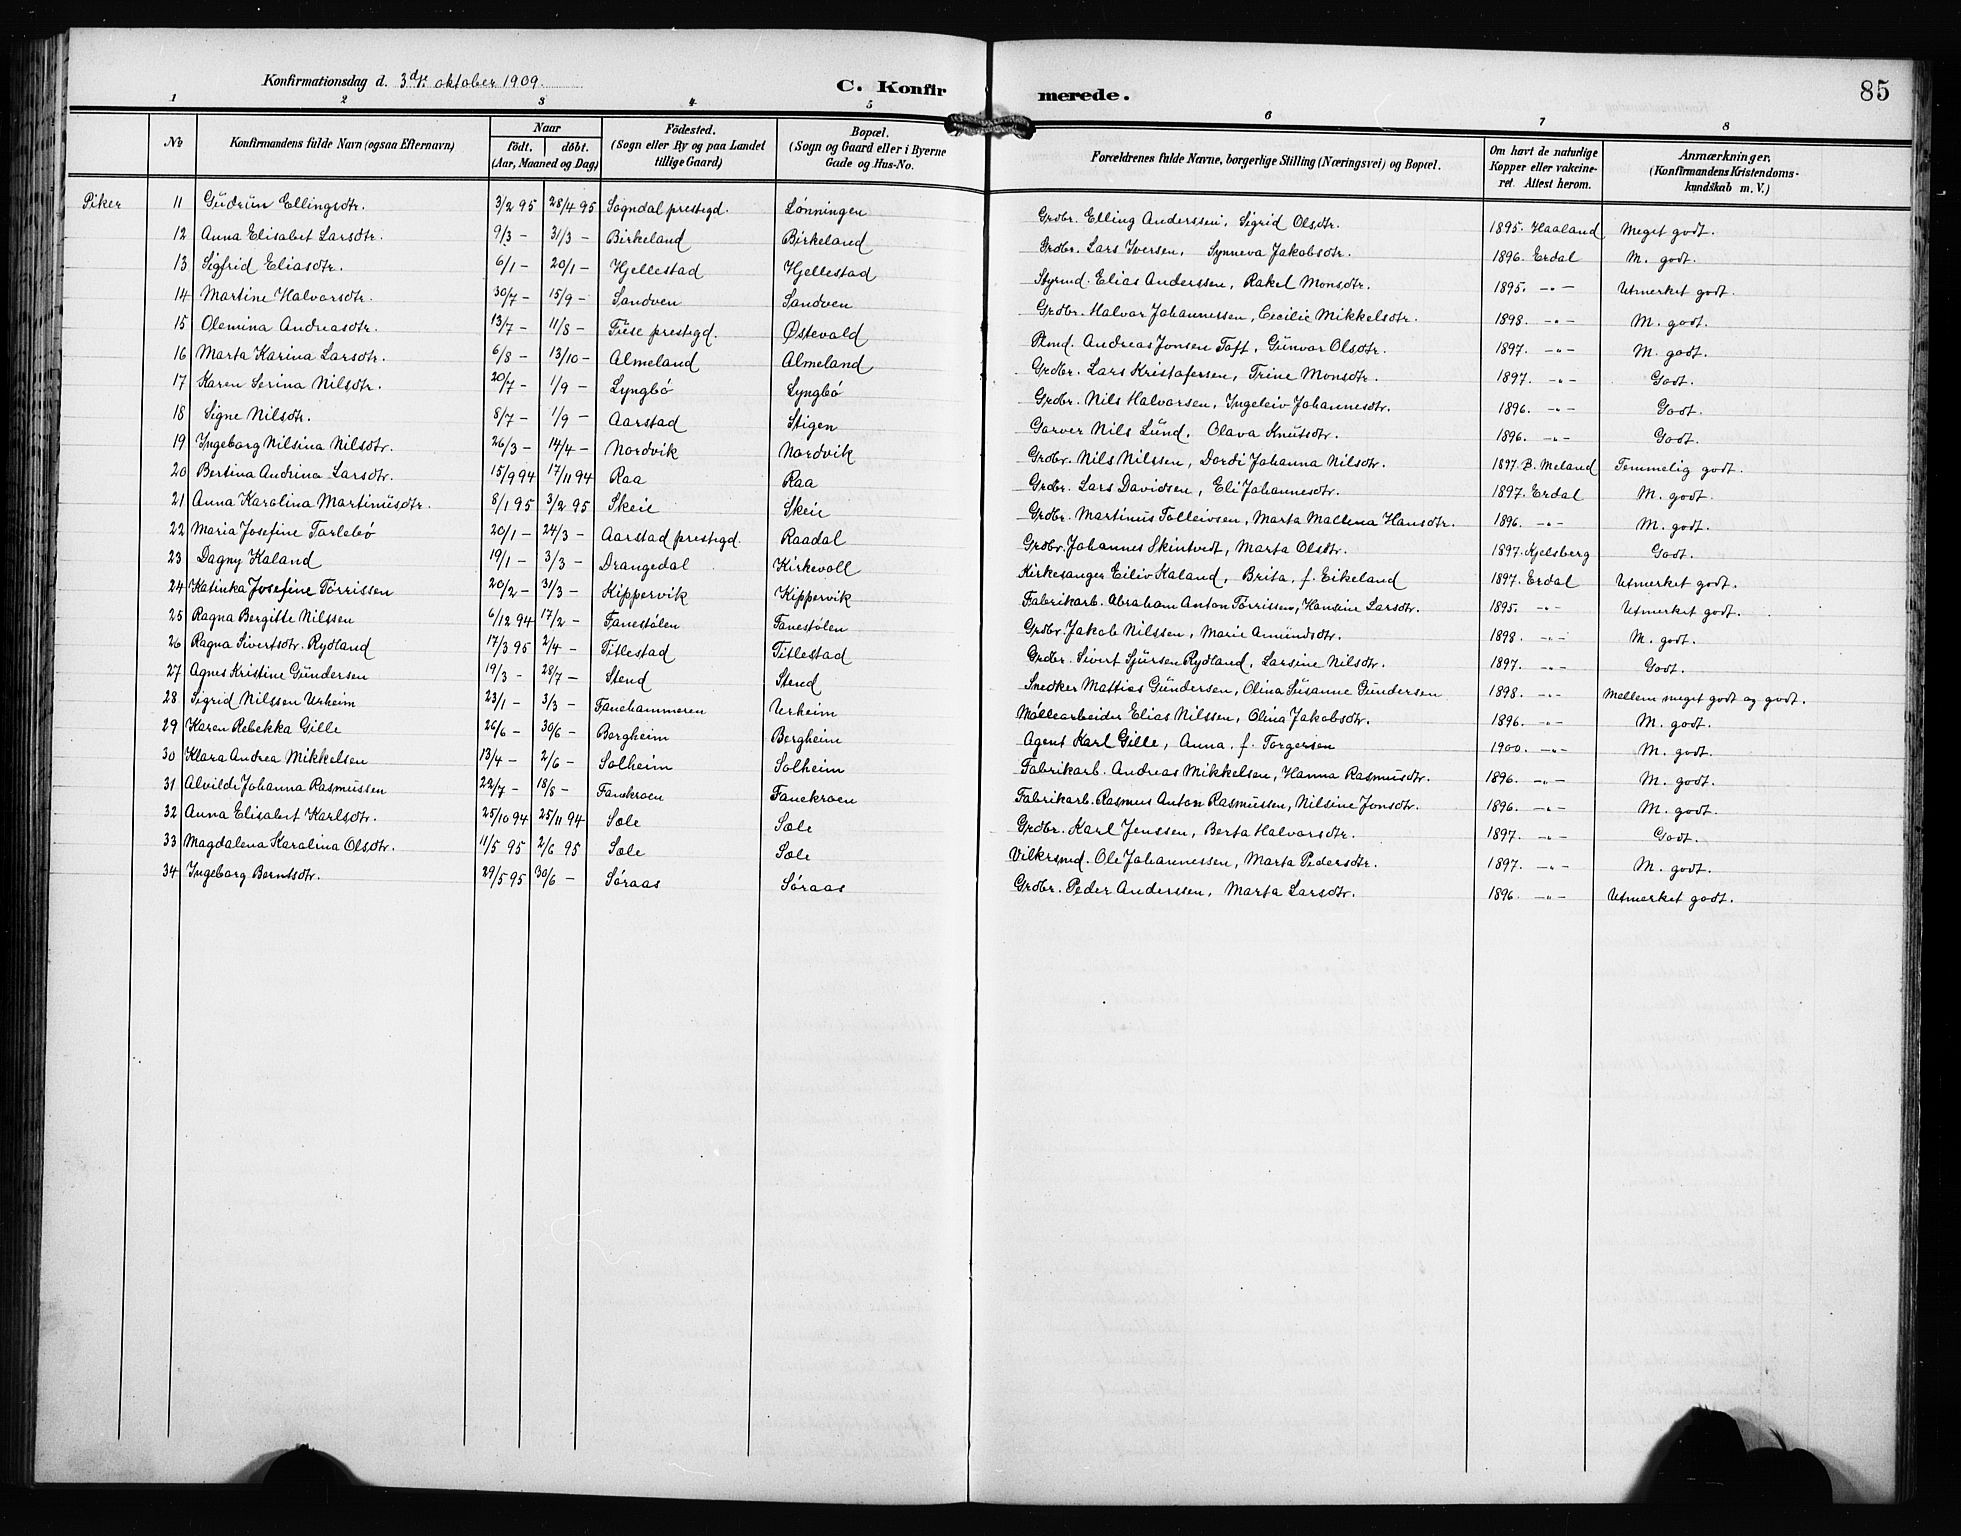 Konfirmationsdag d. 3dje oktober 1909.
C. Konfirmerede.
85
1 2 3 4 5 6 7 8
№ | Konfirmandens fulde Navn (ogsaa Efternavn) | Naar födt. döbt. (Aar, Maaned og Dag) | Födested. (Sogn eller By og paa Landet tillige Gaard) | Bopæl. (Sogn og Gaard eller i Byerne Gade og Hus-No. | Forældrenes fulde Navne, borgerlige Stilling (Næringsvei) og Bopæl. | Om havt de naturlige Kopper eller vakcineret. Attest herom. | Anmærkninger. (Konfirmandens Kristendomskundskab m. V.)
Piker 11 Gudrun Ellingsdtr. 3/2 95 28/4 95 Sogndal prestegd. Lønningen Grdbr. Elling Anderssen, Sigrid Olsdtr. 1895. Haaland Meget godt.
12 Anna Elisabet Larsdtr. 9/3 – 31/3 – Birkeland Birkeland Grdbr. Lars Iversen, Synneva Jakobsdtr. 1896. Erdal M. godt.
13 Sigfrid Eliasdtr. 6/1 – 20/1 – Hjellestad Hjellestad Styrmd. Elias Anderssen, Rakel Monsdtr. 1895. –"– Utmerket godt.
14 Martine Halvorsdtr. 30/7 – 15/9 – Sandven Sandven Grdbr. Halvor Johannessen, Cecilie Mikkelsdtr. 1898. –"– M. godt.
15 Olemina Andreasdtr. 13/7 – 11/8 – Fuse prestegd. Østevald Plmd. Andreas Jonsen Toft, Gunvor Olsdtr. 1897. –"– M. godt.
16 Marta Karina Larsdtr. 6/8 – 13/10 – Almeland Almeland Grdbr. Lars Kristofersen, Trine Monsdtr. 1897. –"– Godt.
17 Karen Serina Nilsdtr. 20/7 – 1/9 – Lyngbø Lyngbø Grdbr. Nils Halvorsen, Ingeleiv Johannesdtr. 1896. –"– Godt.
18 Signe Nilsdtr. 8/7 – 1/9 – Aarstad Stigen Garver Nils Lund, Olava Knutsdtr. 1896. –"– Godt.
19 Ingeborg Nilsina Nilsdtr. 26/3 – 14/4 – Nordvik Nordvik Grdbr. Nils Nilssen, Dordi Johanna Nilsdtr. 1897. B. Meland Temmelig godt.
20 Bertina Andrina Larsdtr. 15/9 94 17/11 94 Raa Raa Grdbr. Lars Davidsen, Eli Johannesdtr. 1897. Erdal M. godt.
21 Anna Karolina Martinusdtr. 8/1 95 3/2 95 Skeie Skeie Grdbr. Martinus Tolleivsen, Marta Mallena Hansdtr. 1896. –"– M. godt.
22 Maria Josefine Tarlebø 20/1 – 24/3 – Aarstad prestegd. Raadal Grdbr. Johannes Skintvedt, Marta Olsdtr. 1897. Kjelsberg Godt.
23 Dagny Kaland 19/1 – 3/3 – Drangedal Kirkevoll Kirkesanger Eiliv Kaland, Brita, f. Eikeland 1897. Erdal Utmerket godt.
24 Katinka Josefine Tørrissen 20/2 – 31/3 – Kippervik Kippervik Fabrikarb. Abraham Anton Tørrissen, Hansine Larsdtr. 1895. –"– Utmerket godt.
25 Ragna Bergitte Nilssen 6/12 94 17/2 – Fanestølen Fanestølen Grdbr. Jakob Nilssen, Marie Amundsdtr. 1898. –"– M. godt.
26 Ragna Sivertsdtr. Rydland 17/3 95 2/4 – Titlestad Titlestad Grdbr. Sivert Sjursen Rydland, Larsine Nilsdtr. 1897. –"– Godt.
27 Agnes Kristine Gundersen 19/3 – 28/7 – Stend Stend Snedker Mattias Gundersen, Olina Susanne Gundersen 1898. –"– Mellem meget godt og godt.
28 Sigrid Nilssen Urheim 23/1 – 3/3 – Fanehammeren Urheim Møllearbeider Elias Nilssen, Olina Jakobsdtr. 1896. –"– M. godt.
29 Karen Rebekka Gille 26/6 – 30/6 – Bergheim Bergheim Agent Karl Gille, Anna, f. Torgersen 1900. –"– M. godt.
30 Klara Andrea Mikkelsen 13/4 – 2/6 – Solheim Solheim Fabrikarb. Andreas Mikkelsen, Hanna Rasmusdtr. 1896. –"– M. godt.
31 Alvilde Johanna Rasmussen 22/7 – 18/8 – Fanekroen Fanekroen Fabrikarb. Rasmus Anton Rasmussen, Nilsine Jonsdtr. 1896. –"– M. godt.
32 Anna Elisabet Karlsdtr. 25/10 94 25/11 94 Sæle Sæle Grdbr. Karl Jenssen, Berta Halvorsdtr. 1897. –"– Godt.
33 Magdalena Karolina Olsdtr. 11/5 95 2/6 95 Sæle Sæle Vilkrsmd. Ole Johannessen, Marta Pedersdtr. 1897. –"– M. godt.
34 Ingeborg Berntsdtr. 29/5 95 30/6 – Søraas Søraas Grdbr. Peder Anderssen, Marta Larsdtr. 1896. –"– Utmerket godt.